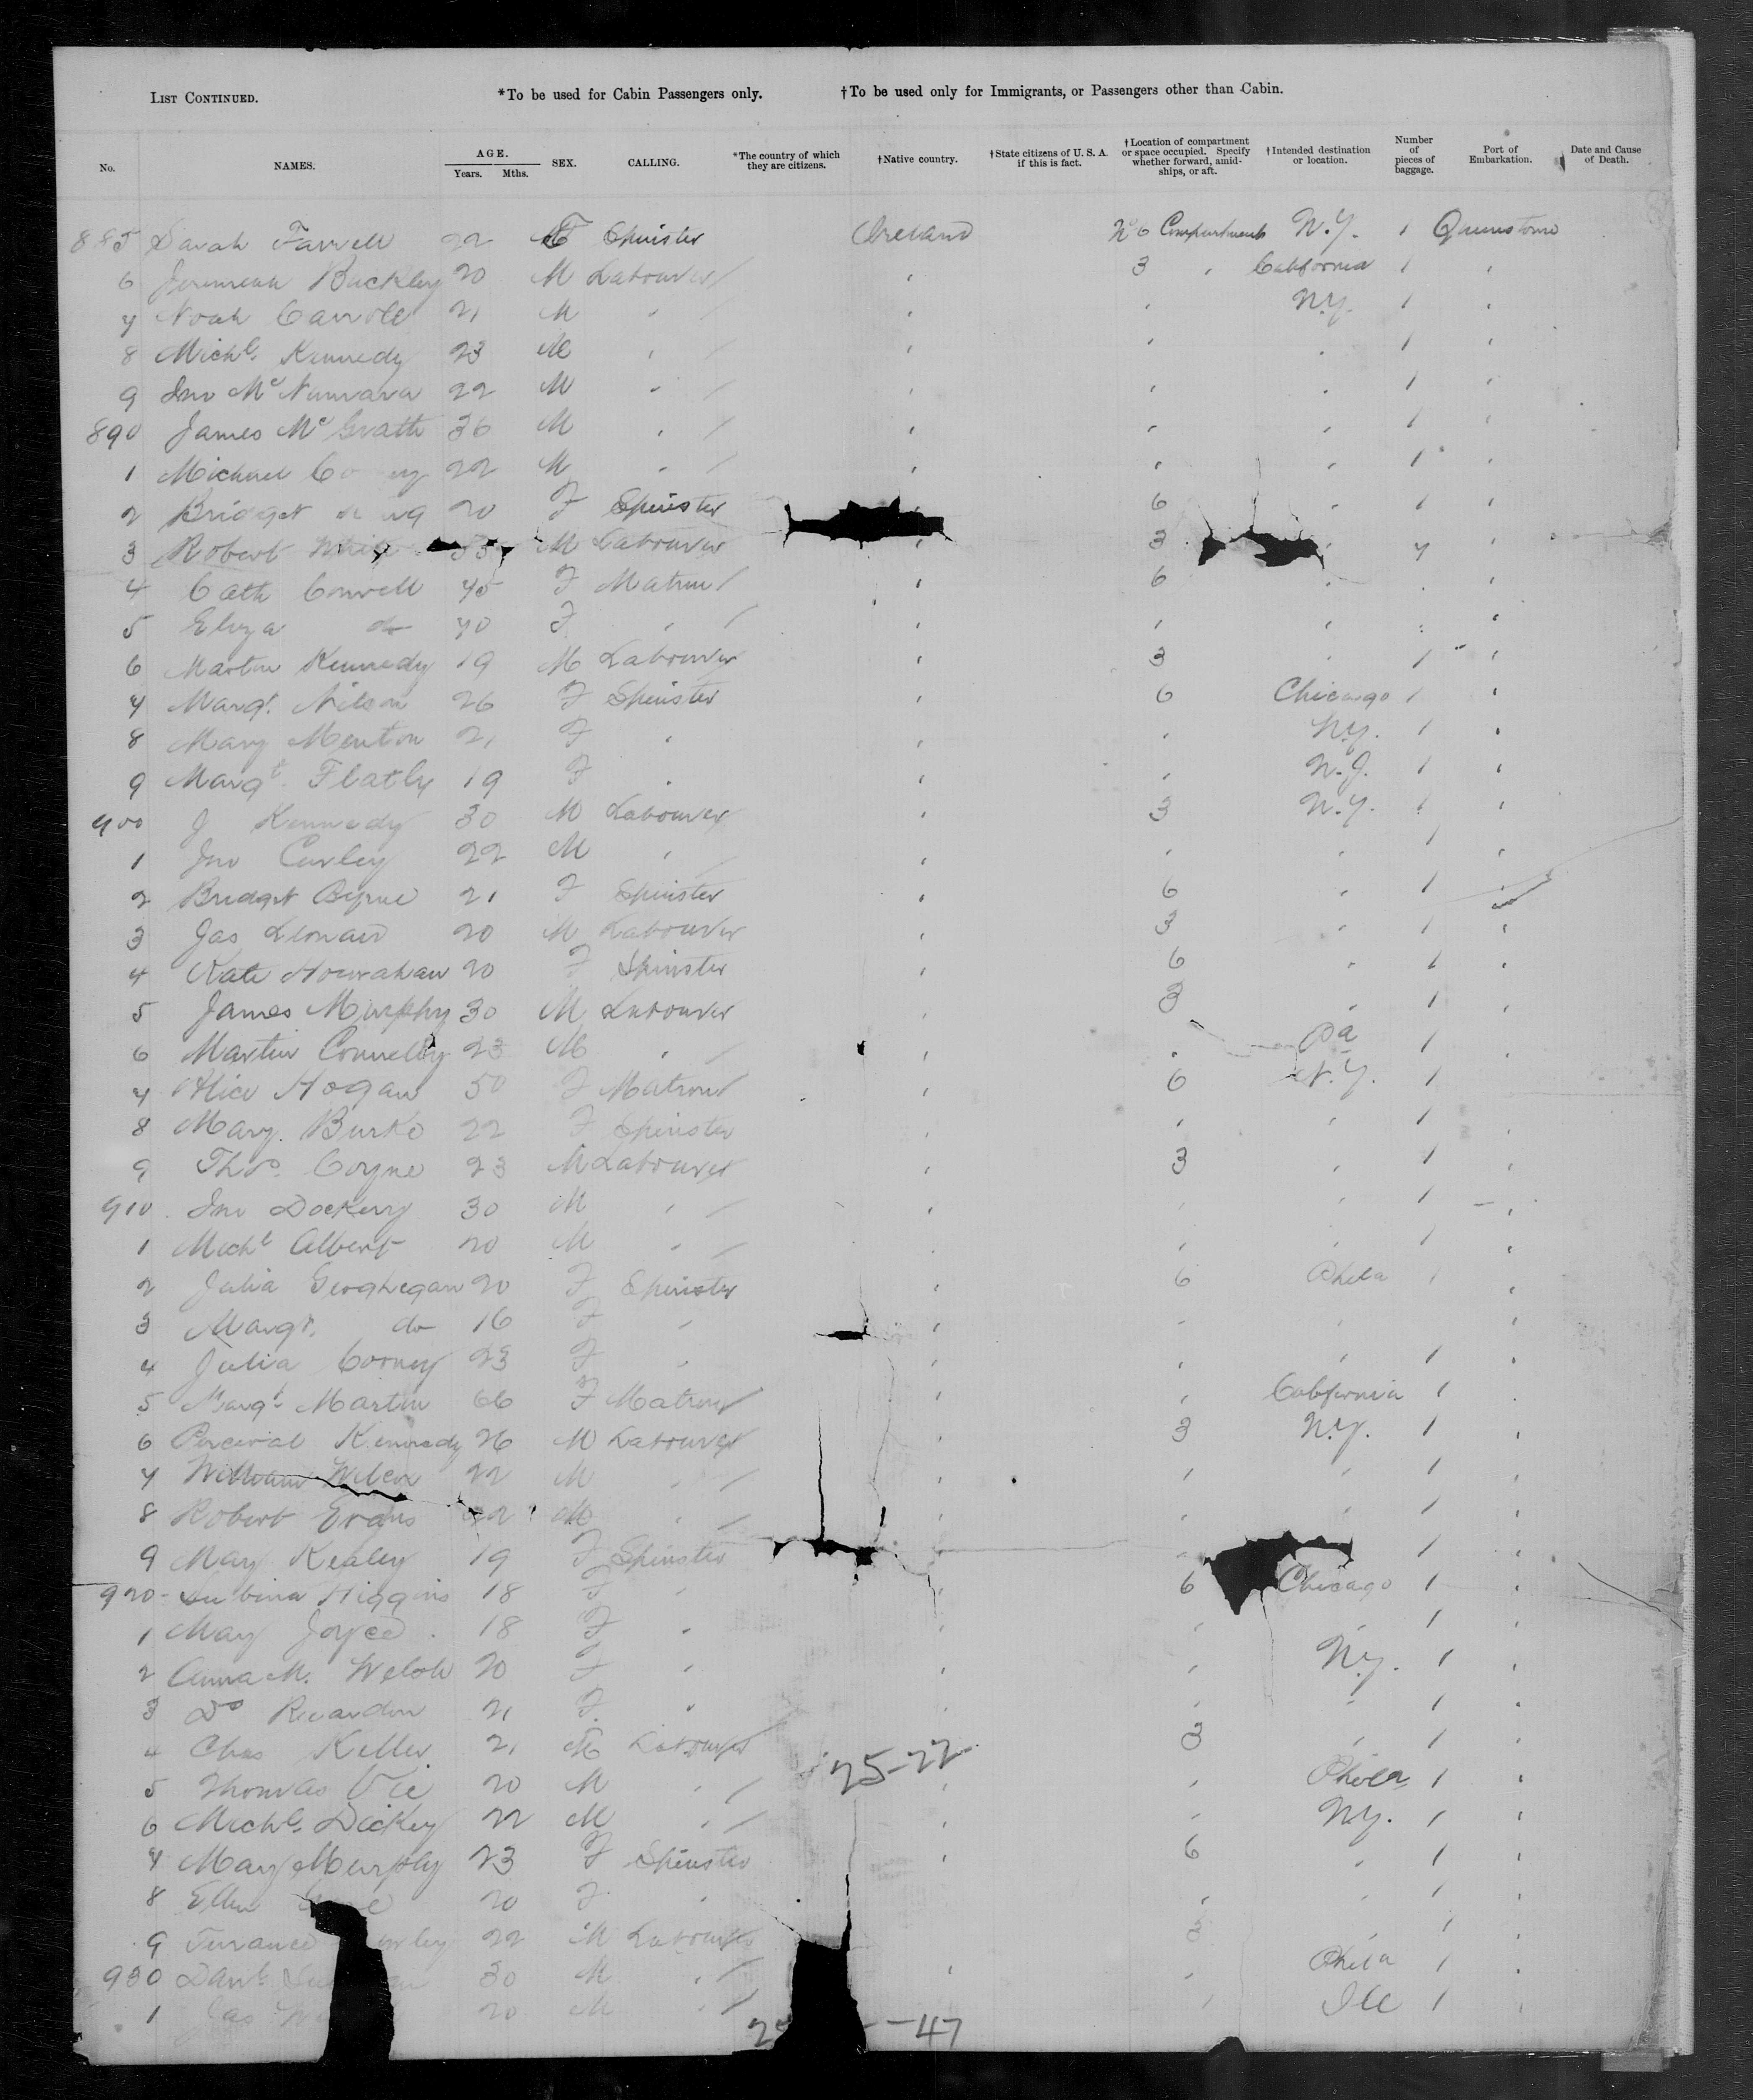 LIST CONTINUED. *To be used for Cabin Passengers only. †To be used only for Immigrants, or Passengers other than Cabin.
No. NAMES. AGE. Years. Mths. SEX. CALLING. *The country of which they are citizens. †Native country. †State citizens of U. S. A. if this is fact. †Location of compartment or space occupied. Specify whether forward, amidships, or aft. †Intended destination or location. Number of pieces of baggage. Port of Embarkation. Date and Cause of Death.
885 Sarah Farrell 22 F Spinster Ireland No 6 Compartment N.Y. 1 Queenstown
6 Jeremiah Buckley 20 M Labourer 3 California 1
7 Noah Carroll 21 M N.Y. 1
8 Michl. Kennedy 23 M 1
9 Jno McNamara 22 M 1
890 James McGrath 36 M 1
1 Michael 22 M 1
2 Bridget 20 F Spinster 6 1
3 Robert White M Labourer 3 7
4 Cath 45 F Matron 6
5 Eliza do 40 F
6 Martin Kennedy 19 M Labourer 3 1
7 Margt. Nilson 26 F Spinster 6 Chicago 1
8 Mary Menton 21 F N.Y. 1
9 Margt. Flatly 19 F N.J. 1
900 J Kennedy 30 M Labourer 3 N.Y. 1
1 Jno Curley 22 M 1
2 Bridget Byrne 21 F Spinster 6 1
3 Jas Leonard 20 M Labourer 3 1
4 Kate Hourahan 20 F Spinster 6 1
5 James Murphy 30 M Labourer 3 1
6 Martin Connelly 23 M Pa 1
7 Alice Hogan 50 F Matron 6 N.Y. 1
8 Mary Burke 22 F Spinster 1
9 Thos. Coyne 23 M Labourer 3 1
910 Jno Dockery 30 M 1
1 Michl Albert 20 M 1
2 Julia Geoghegan 20 F Spinster 6 Phila 1
3 Margt. do 16 F
4 Julia Corney 23 F 1
5 Margt. Martin 66 F Matron California 1
6 Percival Kennedy 26 M Labourer 3 N.Y. 1
7 William 22 M 1
8 Robert Evans M 1
9 Mary Kealey 19 F Spinster 1
920 Higgins 18 F 6 Chicago 1
1 Mary Joyce 18 F 1
2 Anna M. Welsh 20 F N.Y. 1
3 Do Reardon 21 F 1
4 Chas Keller 21 M Labourer 3 1
25-22
5 Thomas 20 M Phila 1
6 Michl. Dickey 22 M N.Y. 1
7 Mary Murphy 23 F Spinster 6 1
8 Ellen 20 F 1
9 Terrance 22 M Labourer 3 1
930 Danl. 30 M Phila 1
1 Jas 20 M Ill 1
47